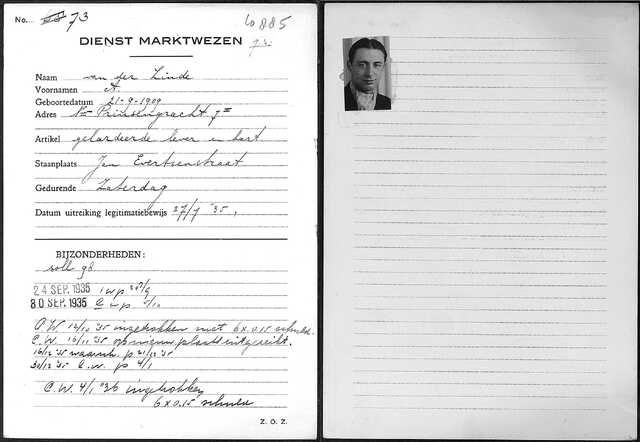 No. 73
60885
DIENST MARKTWEZEN
73
Naam van der Linde
Voornamen A.
Geboortedatum 21-9-1909
Adres Nwe Prinsengracht 7 III
Artikel gelardeerde lever en hart
Staanplaats Jan Evertsenstraat
Gedurende Zaterdag
Datum uitreiking legitimatiebewijs 27/7 '35.
BIJZONDERHEDEN:
soll 98
24 SEP. 1935 1 wp
30 SEP. 1935 wp
C.W. 14/10 '35 ingetrokken met 6 x 0.15 schuld.
C.W. 16/11 '35 opnieuw plaats uitgereikt.
16/12 '35 waarsch. p 21/12 '35
30/12 '35 C.W. ps 4/1
C.W. 4/1 '36 ingetrokken
6 x 0.15 schuld
Z. O. Z.